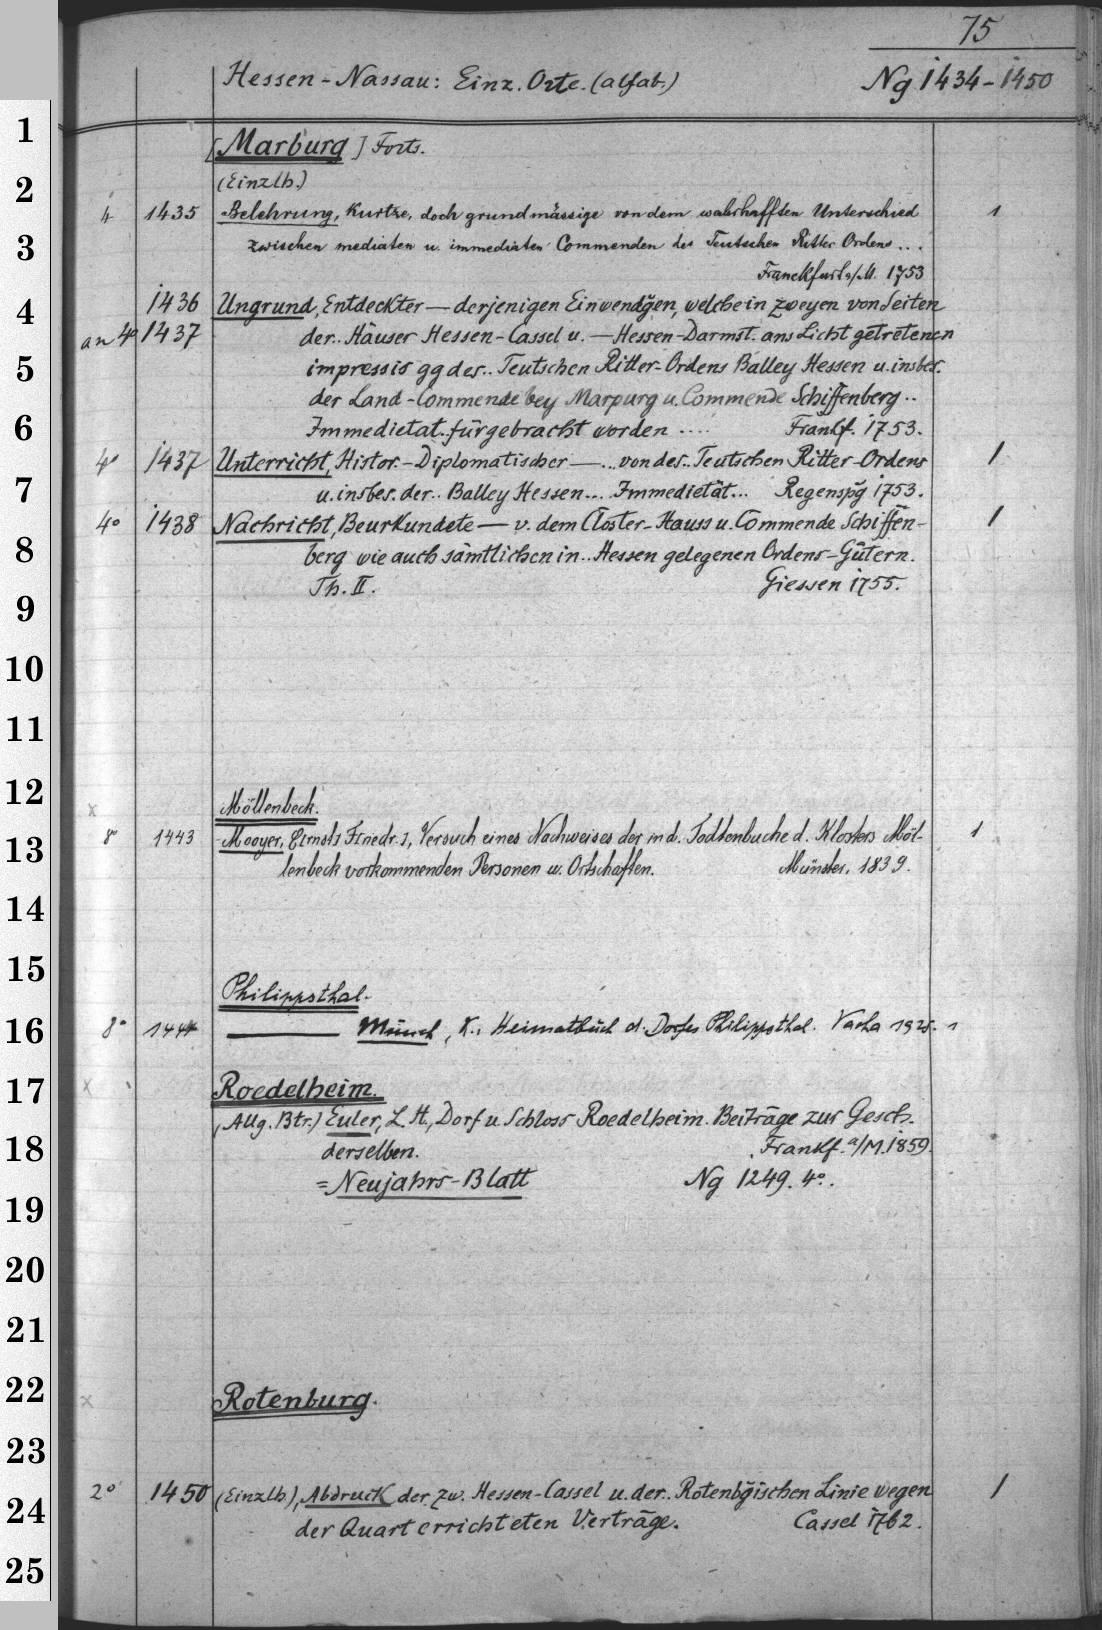 75
Hessen-Nassau: Einz. Orte. (alfab.) Ng 1434-1450
1
[Marburg] Forts.
2
(Einzlh.)
4 1435 Belehrung, Kurtze, doch grundmässige von dem wahrhafften Unterschied 1
3
zwischen mediaten u. immediaten Commenden des Teutschen Ritter Ordens...
Franckfurt a/M. 1753
4
1436 Ungrund, Entdeckter — derjenigen Einwendg̃en, welche in zweyen von Seiten
an 4° 1437 der.. Häuser Hessen-Cassel u. — Hessen-Darmst. ans Licht getretenen
5
impressis gg des.. Teutschen Ritter-Ordens Balley Hessen u. insbes.
der Land-Commende bey Marpurg u. Commende Schiffenberg..
6
Immedietat.. fürgebracht worden .... Frankf. 1753.
4° 1437 Unterricht, Histor.-Diplomatischer — ... von des.. Teutschen Ritter-Ordens 1
7
u. insbes. der.. Balley Hessen... Immedietät... Regenspg̃ 1753.
4° 1438 Nachricht, Beurkundete — v. dem Closter-Hauss u. Commende Schiffen- 1
8
berg wie auch sämtlichen in.. Hessen gelegenen Ordens-Gütern.
Th. II. Giessen 1755.
9
10
11
12
x Möllenbeck.
8° 1443 Mooyer, E[rnst] F[riedr.], Versuch eines Nachweises der in d. Todtenbuche d. Klosters Möl- 1
13
lenbeck vorkommenden Personen u. Ortschaften. Münster, 1839.
14
15
Philippsthal.
16
8° 1444 ——— Münch, K., Heimatbuch d. Dorfes Philippsthal. Vacha 1925. 1
17
x Roedelheim.
(Allg. Btr.) Euler, L. H., Dorf u. Schloss Roedelheim. Beiträge zur Gesch.
18
derselben. Frankf. a/M. 1859.
= Neujahrs-Blatt Ng 1249. 4°.
19
20
21
22
x Rotenburg.
23
2° 1450 (Einzlh.) Abdruck der zw. Hessen-Cassel u. der.. Rotenbg̃ischen Linie wegen 1
24
der Quart errichteten Verträge. Cassel 1762.
25